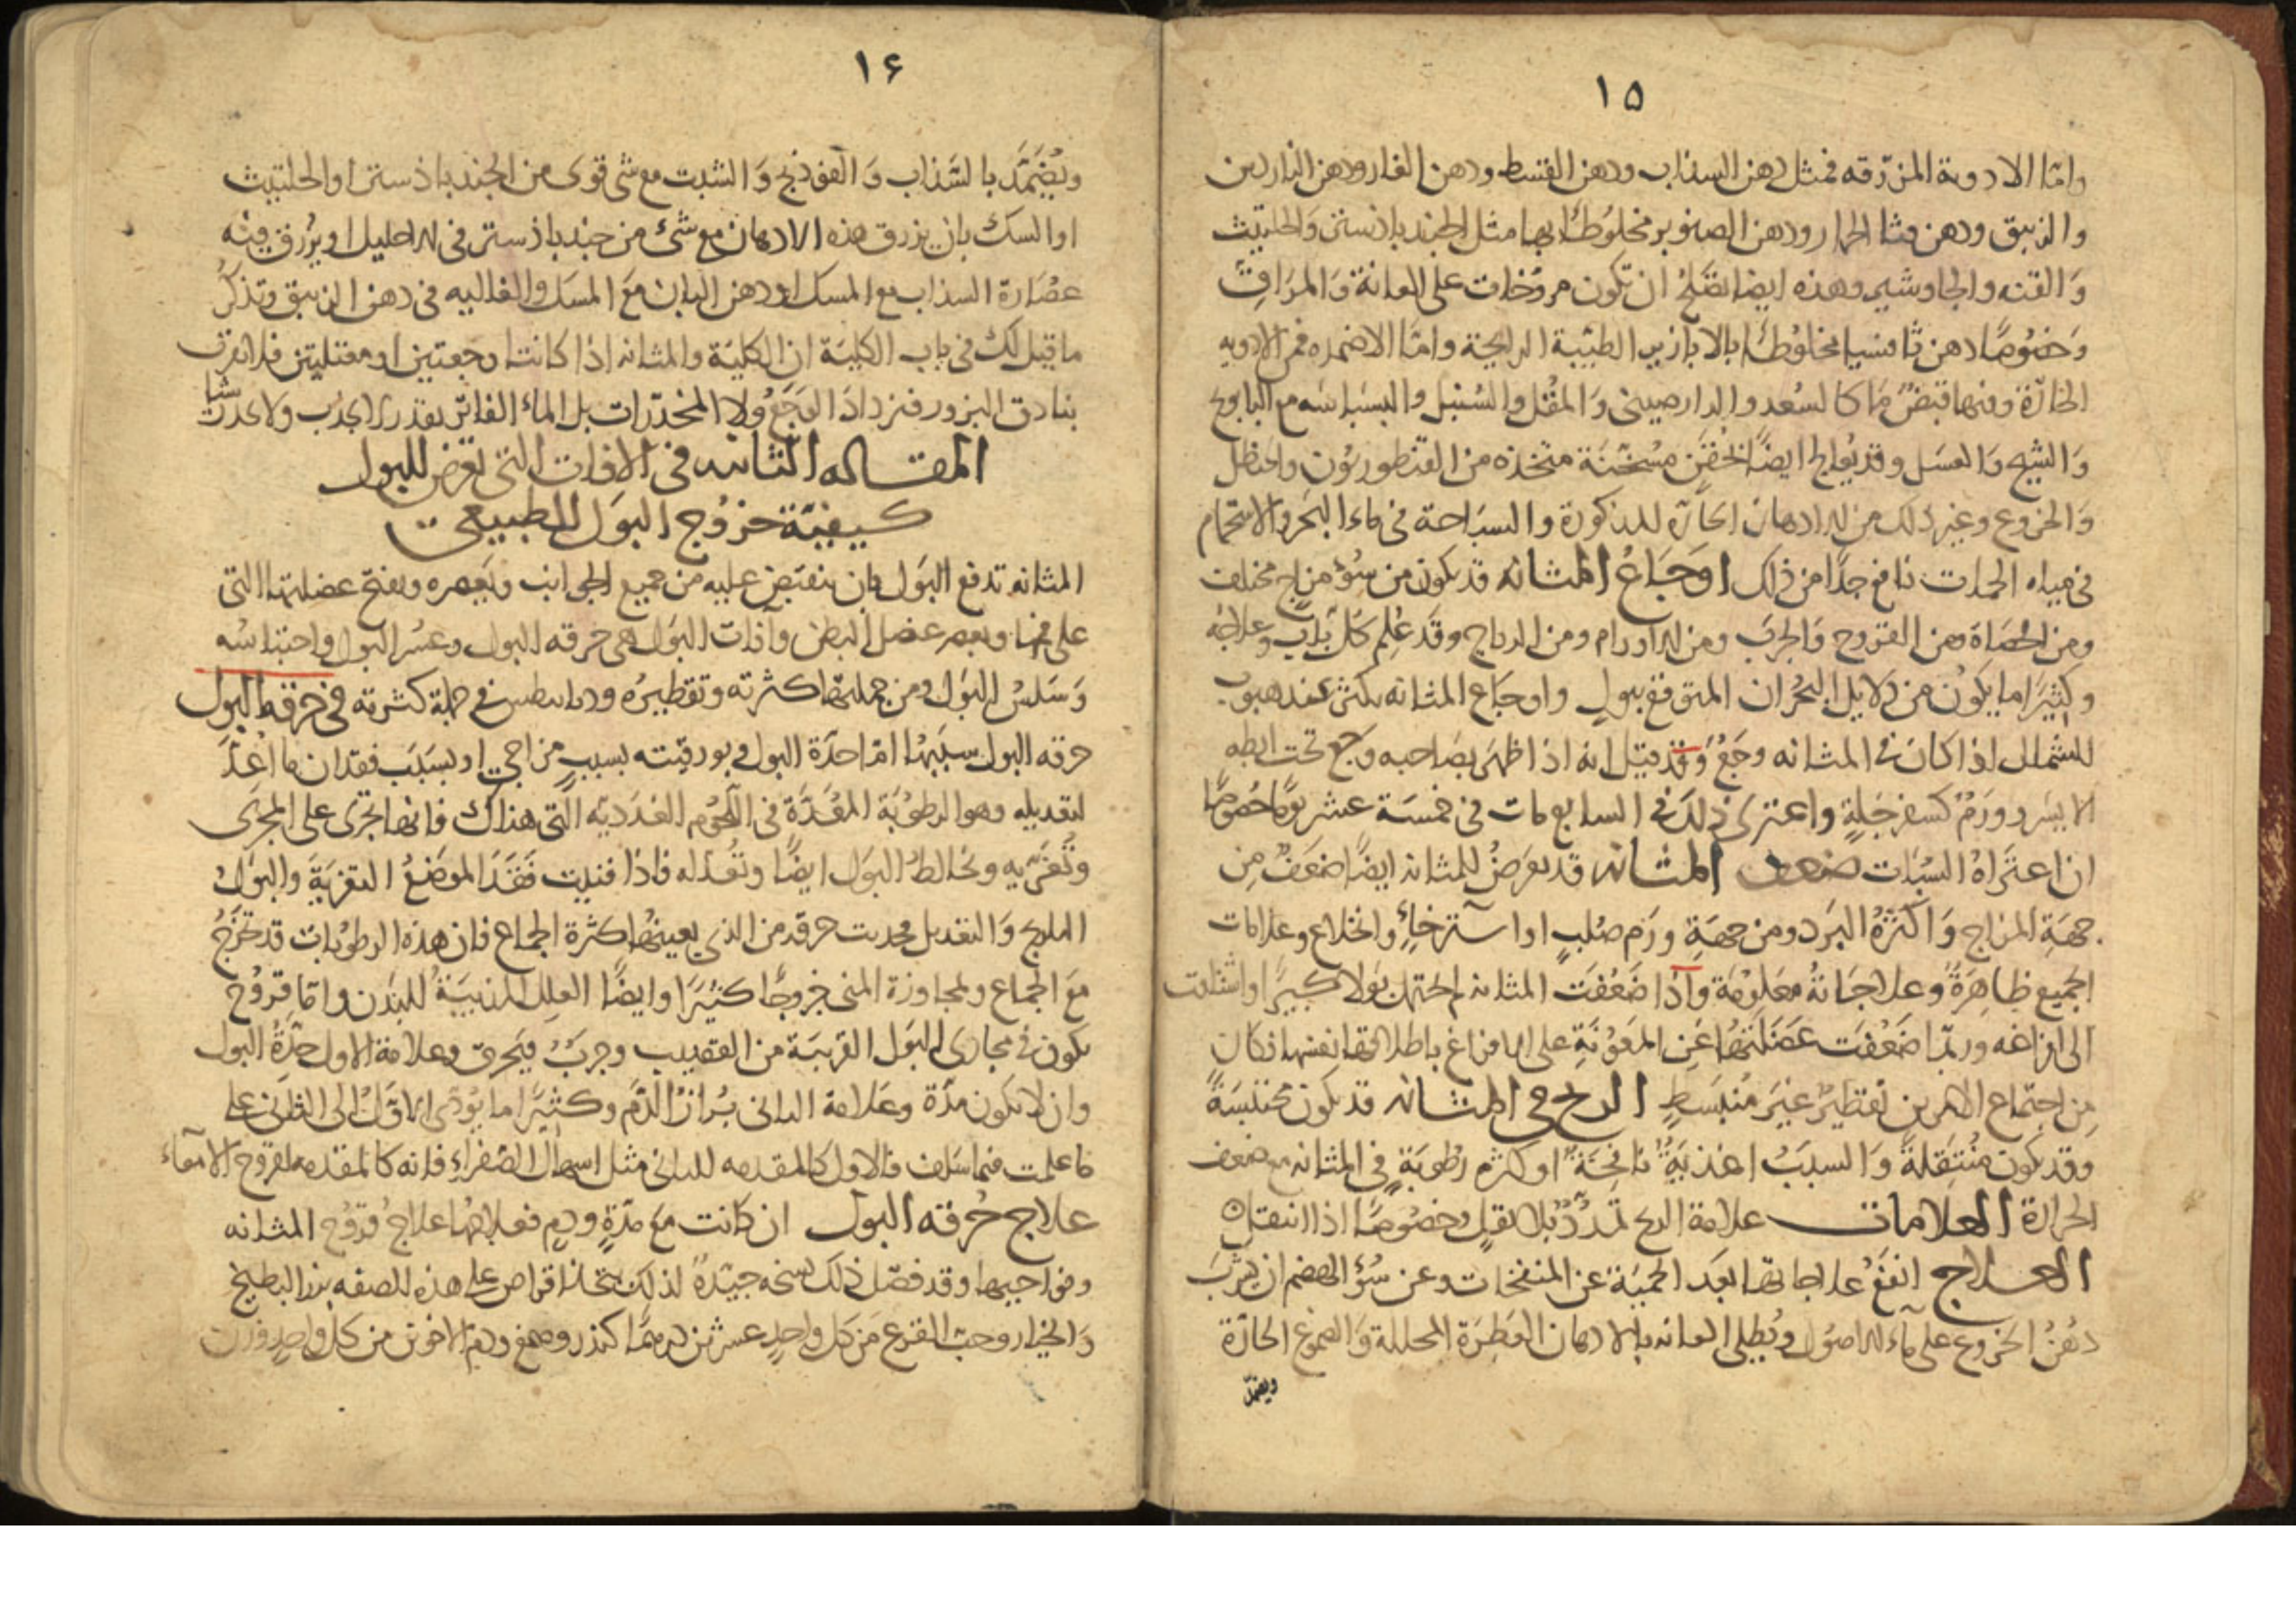 ١٥
واما الادوية المزرقه فمثل دهن السذاب ودهن القسط ودهن الغار ودهن الناردين
والزنبق ودهن قثا الحمار ودهن الصنوبر مخلوطا بها مثل الجندباذستر والحلتيث
والقنه والجاوشير وهذه ايضا تصلح ان تكون مروخات على العانة والمراق
وخصوصا دهن قثا مخلوطا بالابازير الطيبة الرايحة واما الاضمده فمن الادويه
الحارة وفيها قبض ما كالسعد والدارصيني والمقل والسنبل والبسباسه مع البابونج
والشيح والعسل وقد يعالج ايضا بحقن مسخنة متخذه من القنطوريون والحنظل
والخروع وغير ذلك من الادهان الحاره المذكورة والسباحة في ماء البحر والاستحمام
في مياه الحمات نافع جدا من ذلك اوجاع المثانه قد يكون من سوء مزاج مختلف
ومن الحصاة ومن القروح والجرب ومن الاورام ومن الرياح وقد علم كل باب وعلاجه
وكثيرا ما يكون من دلايل البحران المتوقع ببول واوجاع المثانه تكثر عند هبوب
الشمال اذا كان في المثانه وجع وقد قيل انه اذا ظهر بصاحبه وجع تحت ابطه
الايسر وورم كسفرجلة واعترى ذلك في السابع مات في خمسة عشر يوما خصوصا
ان اعتراه السبات ضعف المثانه قد يعرض للمثانه ايضا ضعف من
جهة المزاج واكثره البرد ومن جهة ورم صلب او استرخاء وانخلاع وعلامات
الجميع ظاهرة وعلاجاته معلومة واذا ضعفت المثانه لم تحتمل بولا كبيرا واشتاقت
الى افراغه وربما ضعفت عضلتها عن المعونة على الافراغ باطلاقها نفسها فكان
من اجتماع الامرين تقطير غير منبسط الريح في المثانه قد يكون محتبسة
وقد يكون منتقلة والسبب اغذية نافخة او كثره رطوبة في المثانه مع ضعف
الحرارة العلامات علامة الريح تمدد بلا ثقل وخصوصا اذا انتقل
العلاج انفع علاجاتها بعد الحمية عن المنفخات وعن سوء الهضم ان يشرب
دهن الخروع على ماء الاصول ويطلى العانه بالادهان العطرة المحللة والصموغ الحارة
ويضمد
١٤
ويضمد بالسذاب والفوذنج والشبت مع شي قوى من الجندباذستر او الحلتيث
او السك بان يزرق هذه الادهان مع شئ من جندباذستر في الاحليل او يزرق فيه
عصارة السذاب مع المسك او دهن البان مع المسك والغاليه في دهن الزنبق وتذكر
ما قيل لك في باب الكلية ان الكلية والمثانه اذا كانتا وجعتين او معتليتين فلا تفرق
بنادق البزور فتزداد الوجع ولا المخدرات بل الماء الفاتر بقدر لا يجذب ولا يحدث شيا
المقاله الثانيه في الافات التي تعرض للبول
كيفية خروج البول الطبيعي
المثانه تدفع البول بان ينقبض عليه من جميع الجوانب ويعصره ويفتح عضلتها التي
على فمها ويعصر عضل البطن وآفات البول هي حرقه البول وعسر البول واحتباسه
وسلس البول ومن جملتها كثرته وتقطيره وديانيطس في جملة كثرته في حرقه البول
حرقه البول سببها اما حدة البول وبورقيته بسبب مزاجي او بسبب فقدان ما اعد
لتعديله وهو الرطوبة المعدة في اللحوم الغددية التي هناك فانها تجرى على المجرى
وتغريه وتخالط البول ايضا وتعدله فاذا فنيت فقد الموضع التغرية والبول
المزج والتعديل فحدثت حرقه من الذي يعينها كثرة الجماع فان هذه الرطوبات قد تخرج
مع الجماع ولمجاوزة المني خروجا كثيرا وايضا العلل المذيبة للبدن واما قروح
يكون في مجارى البول القريبة من القضيب وجرب فيحرق وعلامة الاول حدة البول
وان لا يكون مدة وعلامة الثانى بروز الدم وكثيرا ما يؤدى الاول الى الثانى على
ما علمت فيما سلف فالاول كالمقدمه للثانى مثل اسهال الصفراء فانه كالمقدمه لقروح الامعاء
علاج حرقه البول ان كانت مع مدة ودم فعلاجها علاج قروح المثانه
ونواحيها وقد فصل ذلك نسخه جيدة لذلك يتخذ اقراص على هذه الصفه بزر البطيخ
والخيار وحب القرع من كل واحد عشرين درهما كندر وصمغ ودم الاخوين من كل واحد وزن